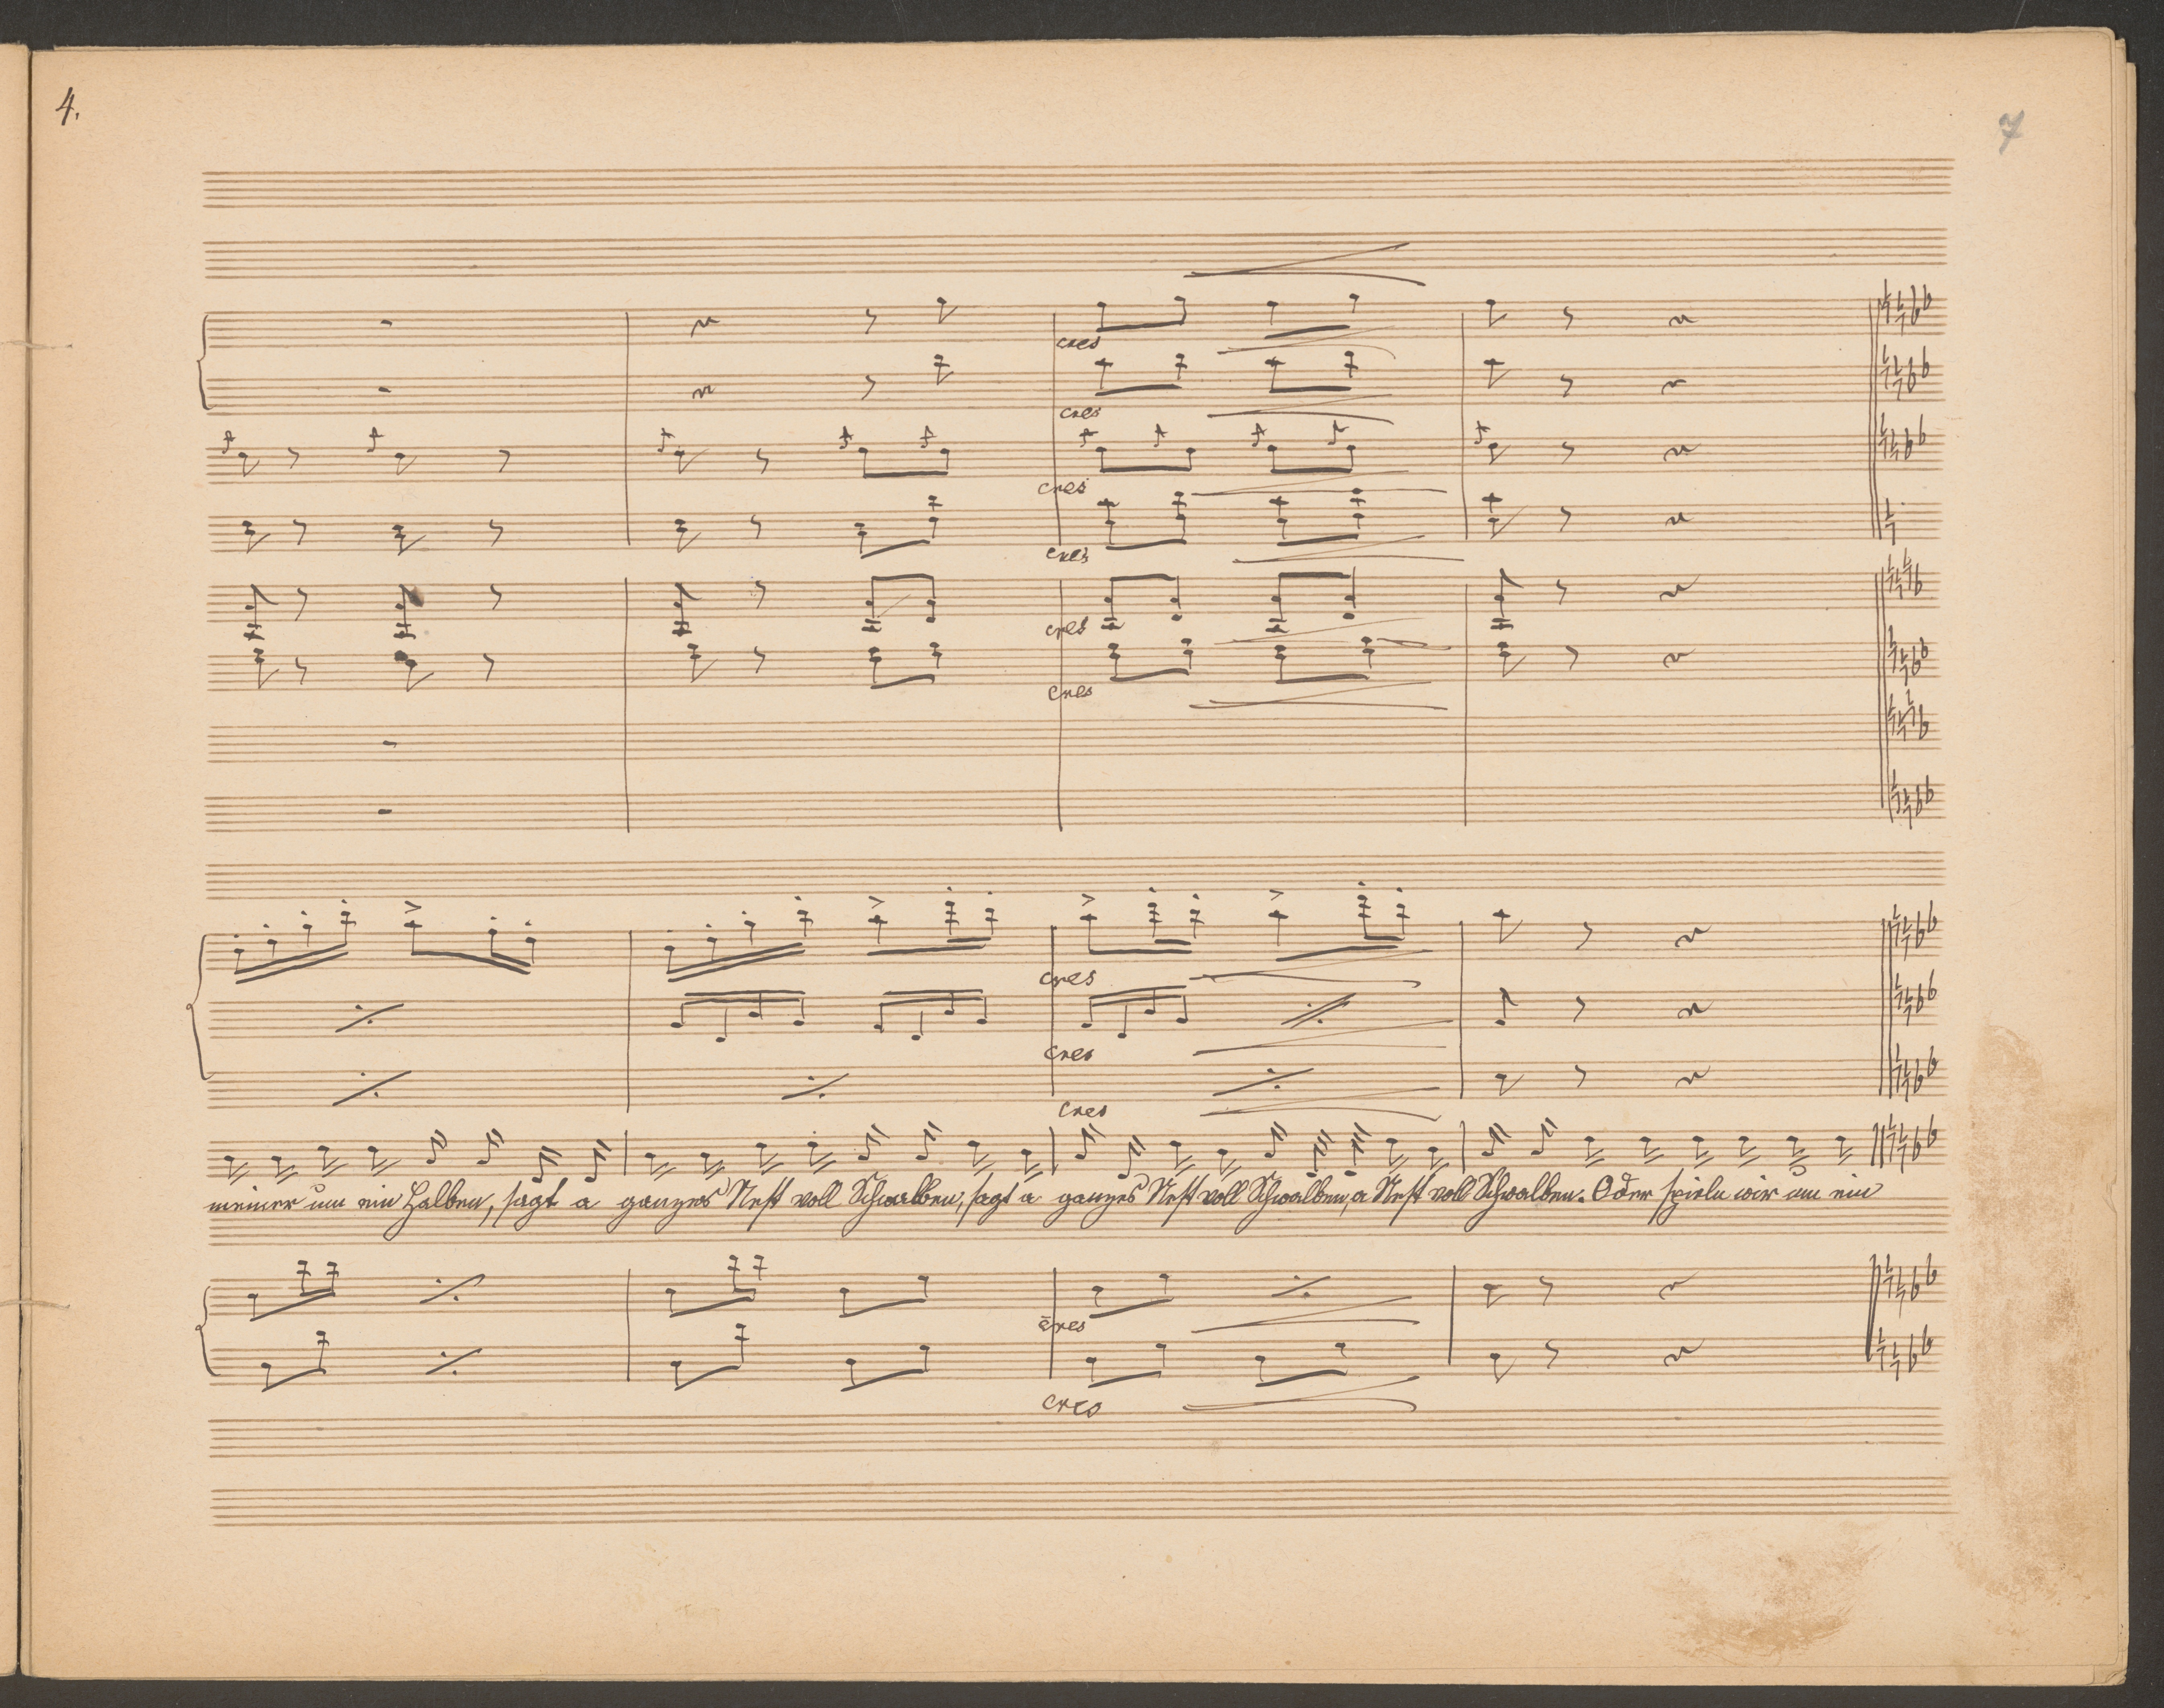 4.
7
cres
cres
cres
cres
cres
cres
cres
cres
cres
meiner um ein Halben, sagt a ganzes Nest voll Schwalben, sagt a ganzes Nest voll Schwalben, a Nest voll Schwalben. Oder spieln wir um ein
cres
cres